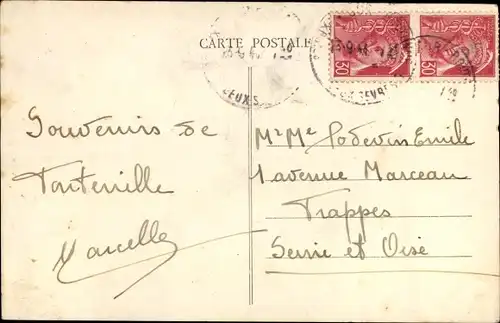 CARTE POSTALE
Souvenirs de
Fonteville
Marcelle
Mr Me Podevin Emile
1 avenue Marceau
Trappes
Seine et Oise
30
30